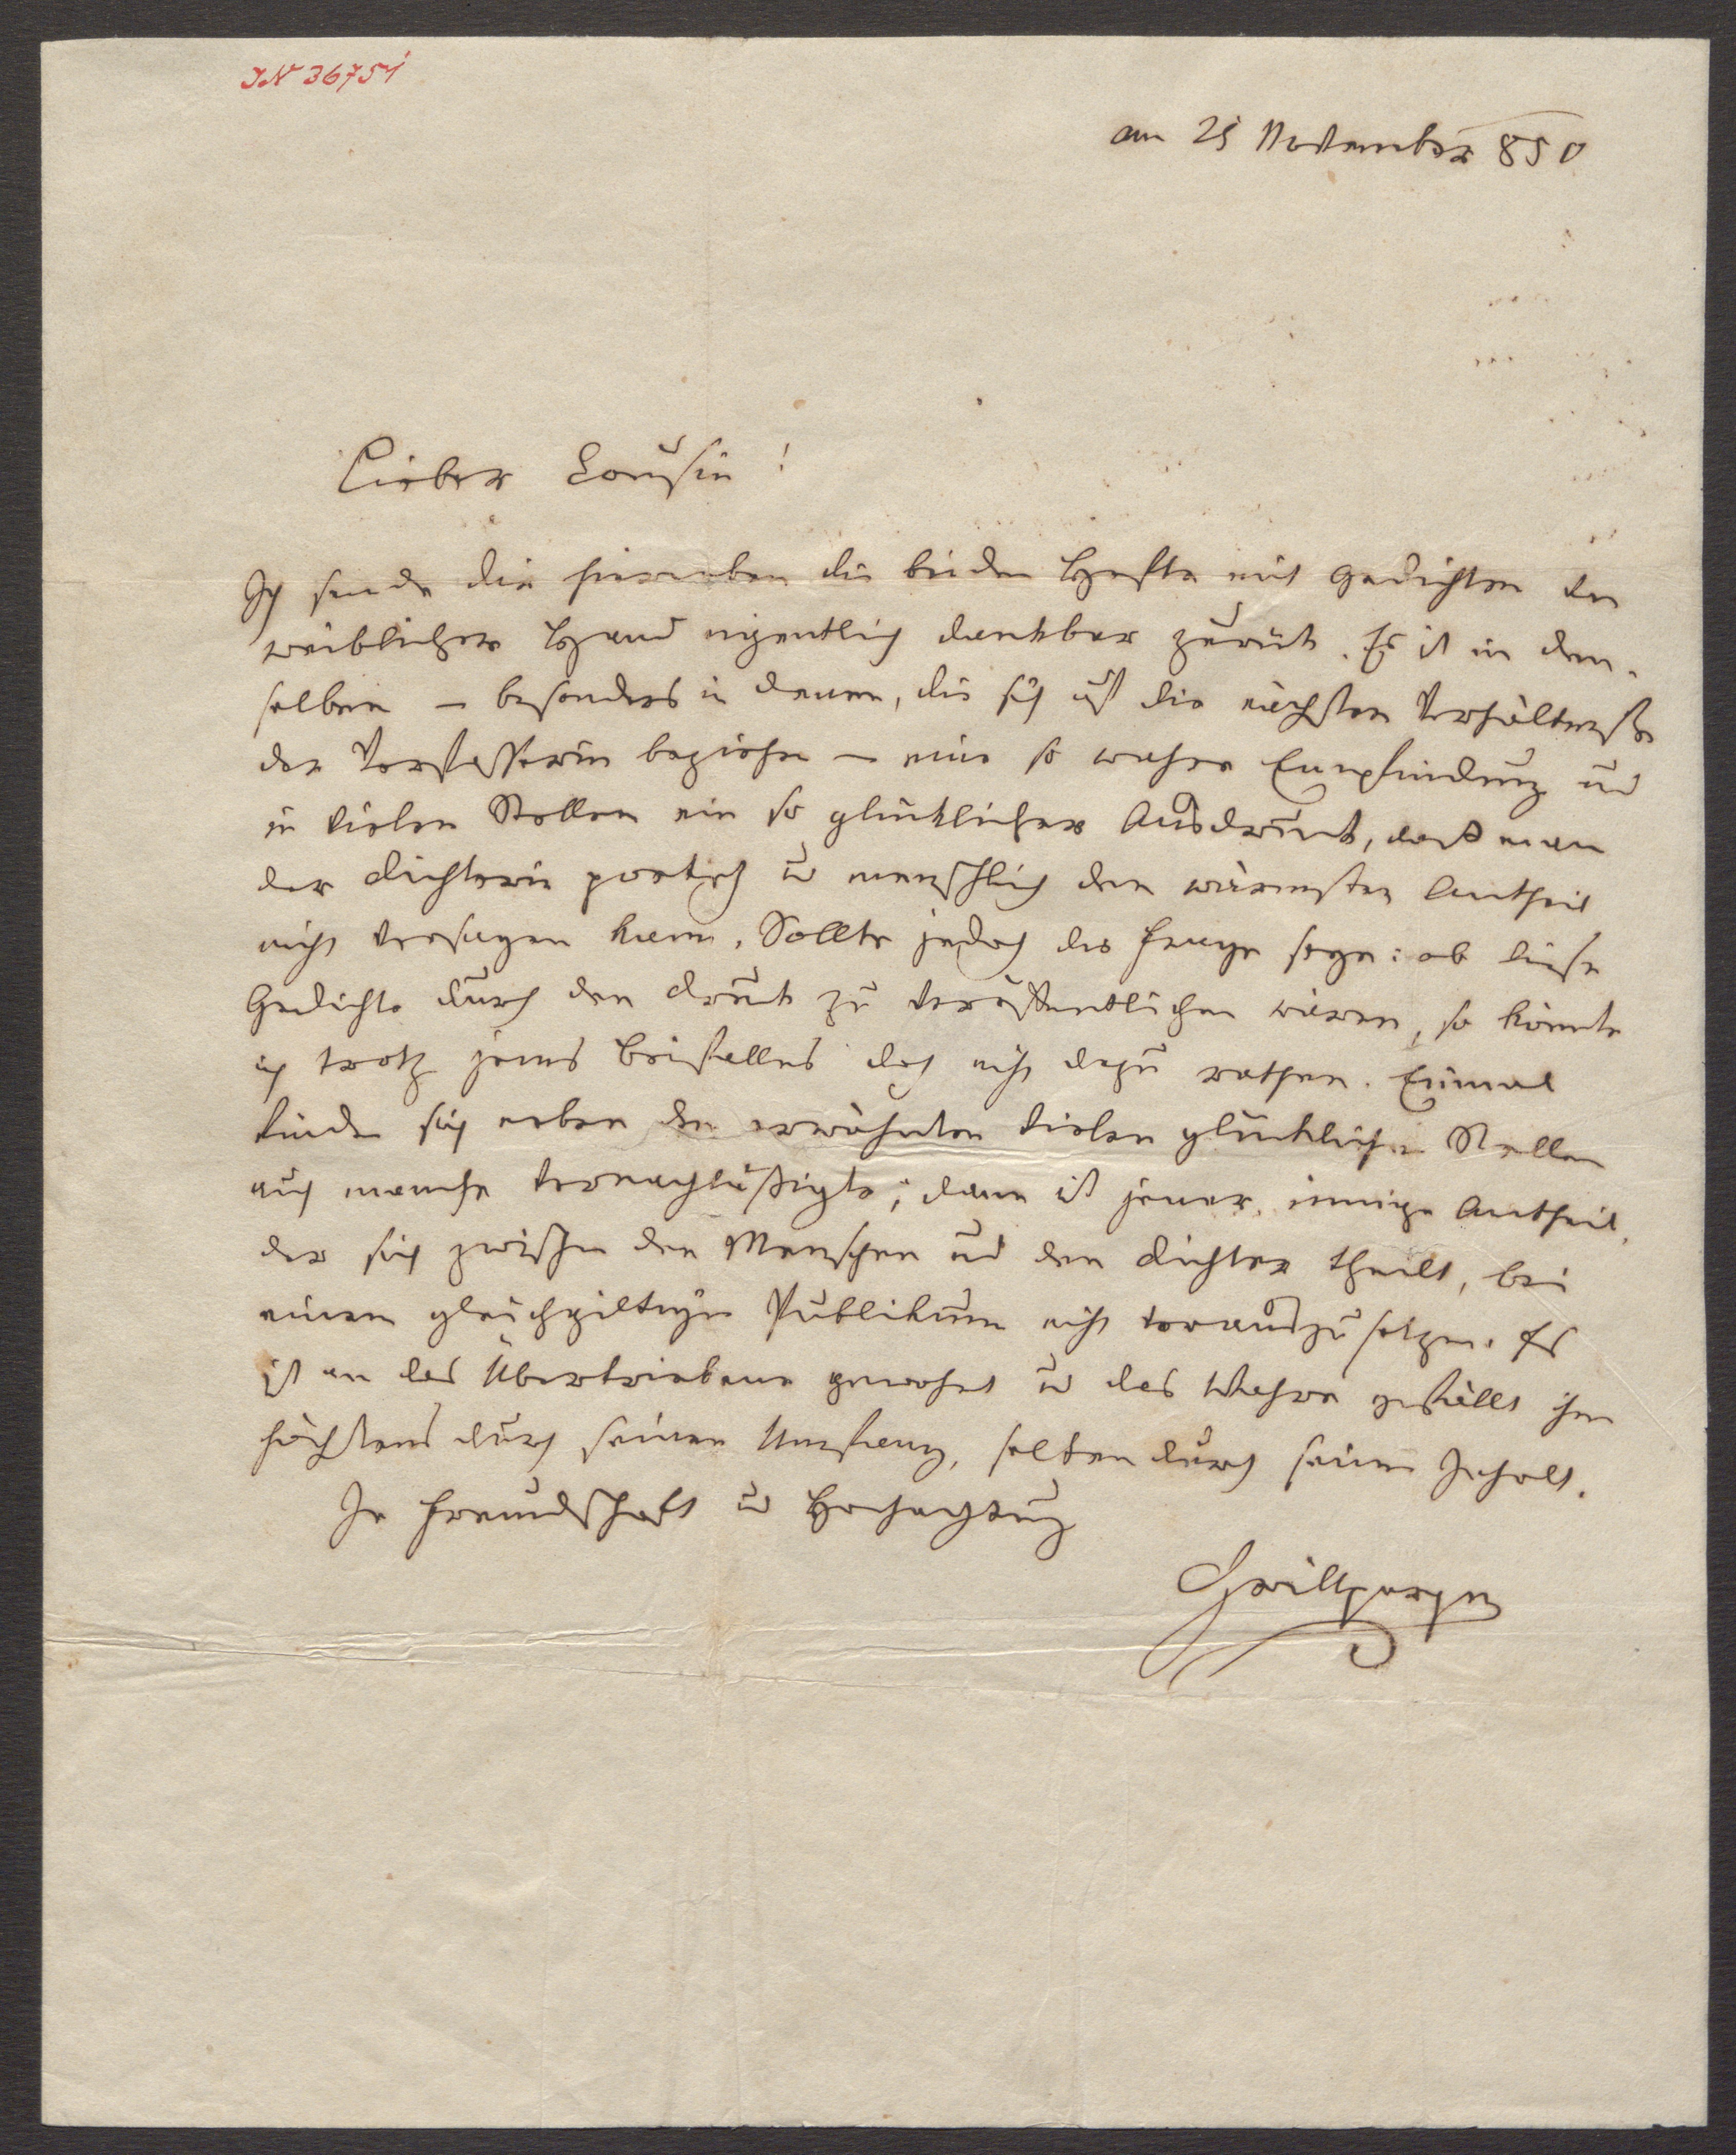 IN 36751
am 25 November 850
Lieber Cousin!
Ich sende dir hierneben die beiden Hefte mit Gedichten von
weiblicher Hand eigentlich dankbar zurück. Es ist in den-
selben – besonders in denen, die sich auf die nächsten Verhältniße
der Verfasserin beziehen – eine so wahre Empfindung und
in vielen Stellen ein so glücklicher Ausdruck, daß man
der Dichterin poetisch u menschlich den wärmsten Antheil
nicht versagen kann. Sollte jedoch die Frage seyn: ob diese
Gedichte durch den Druck zu veröffentlichen wären, so könnte
ich trotz jenes Beifalles doch nicht dazu rathen. Einmal
finden sich neben den erwähnten vielen glücklichen Stellen
auch manche vernachläßigte; dann ist jener innige Antheil,
der sich zwischen den Menschen und den Dichter theilt, bei
einem gleichgiltigen Publikum nicht vorauszusetzen. Es
ist an das Übertriebene gewohnt u das Wahre gefällt ihm
höchstens durch seinen Umfang, selten durch seinen Inhalt.
In Freundschaft u Hochachtung
Grillparzer